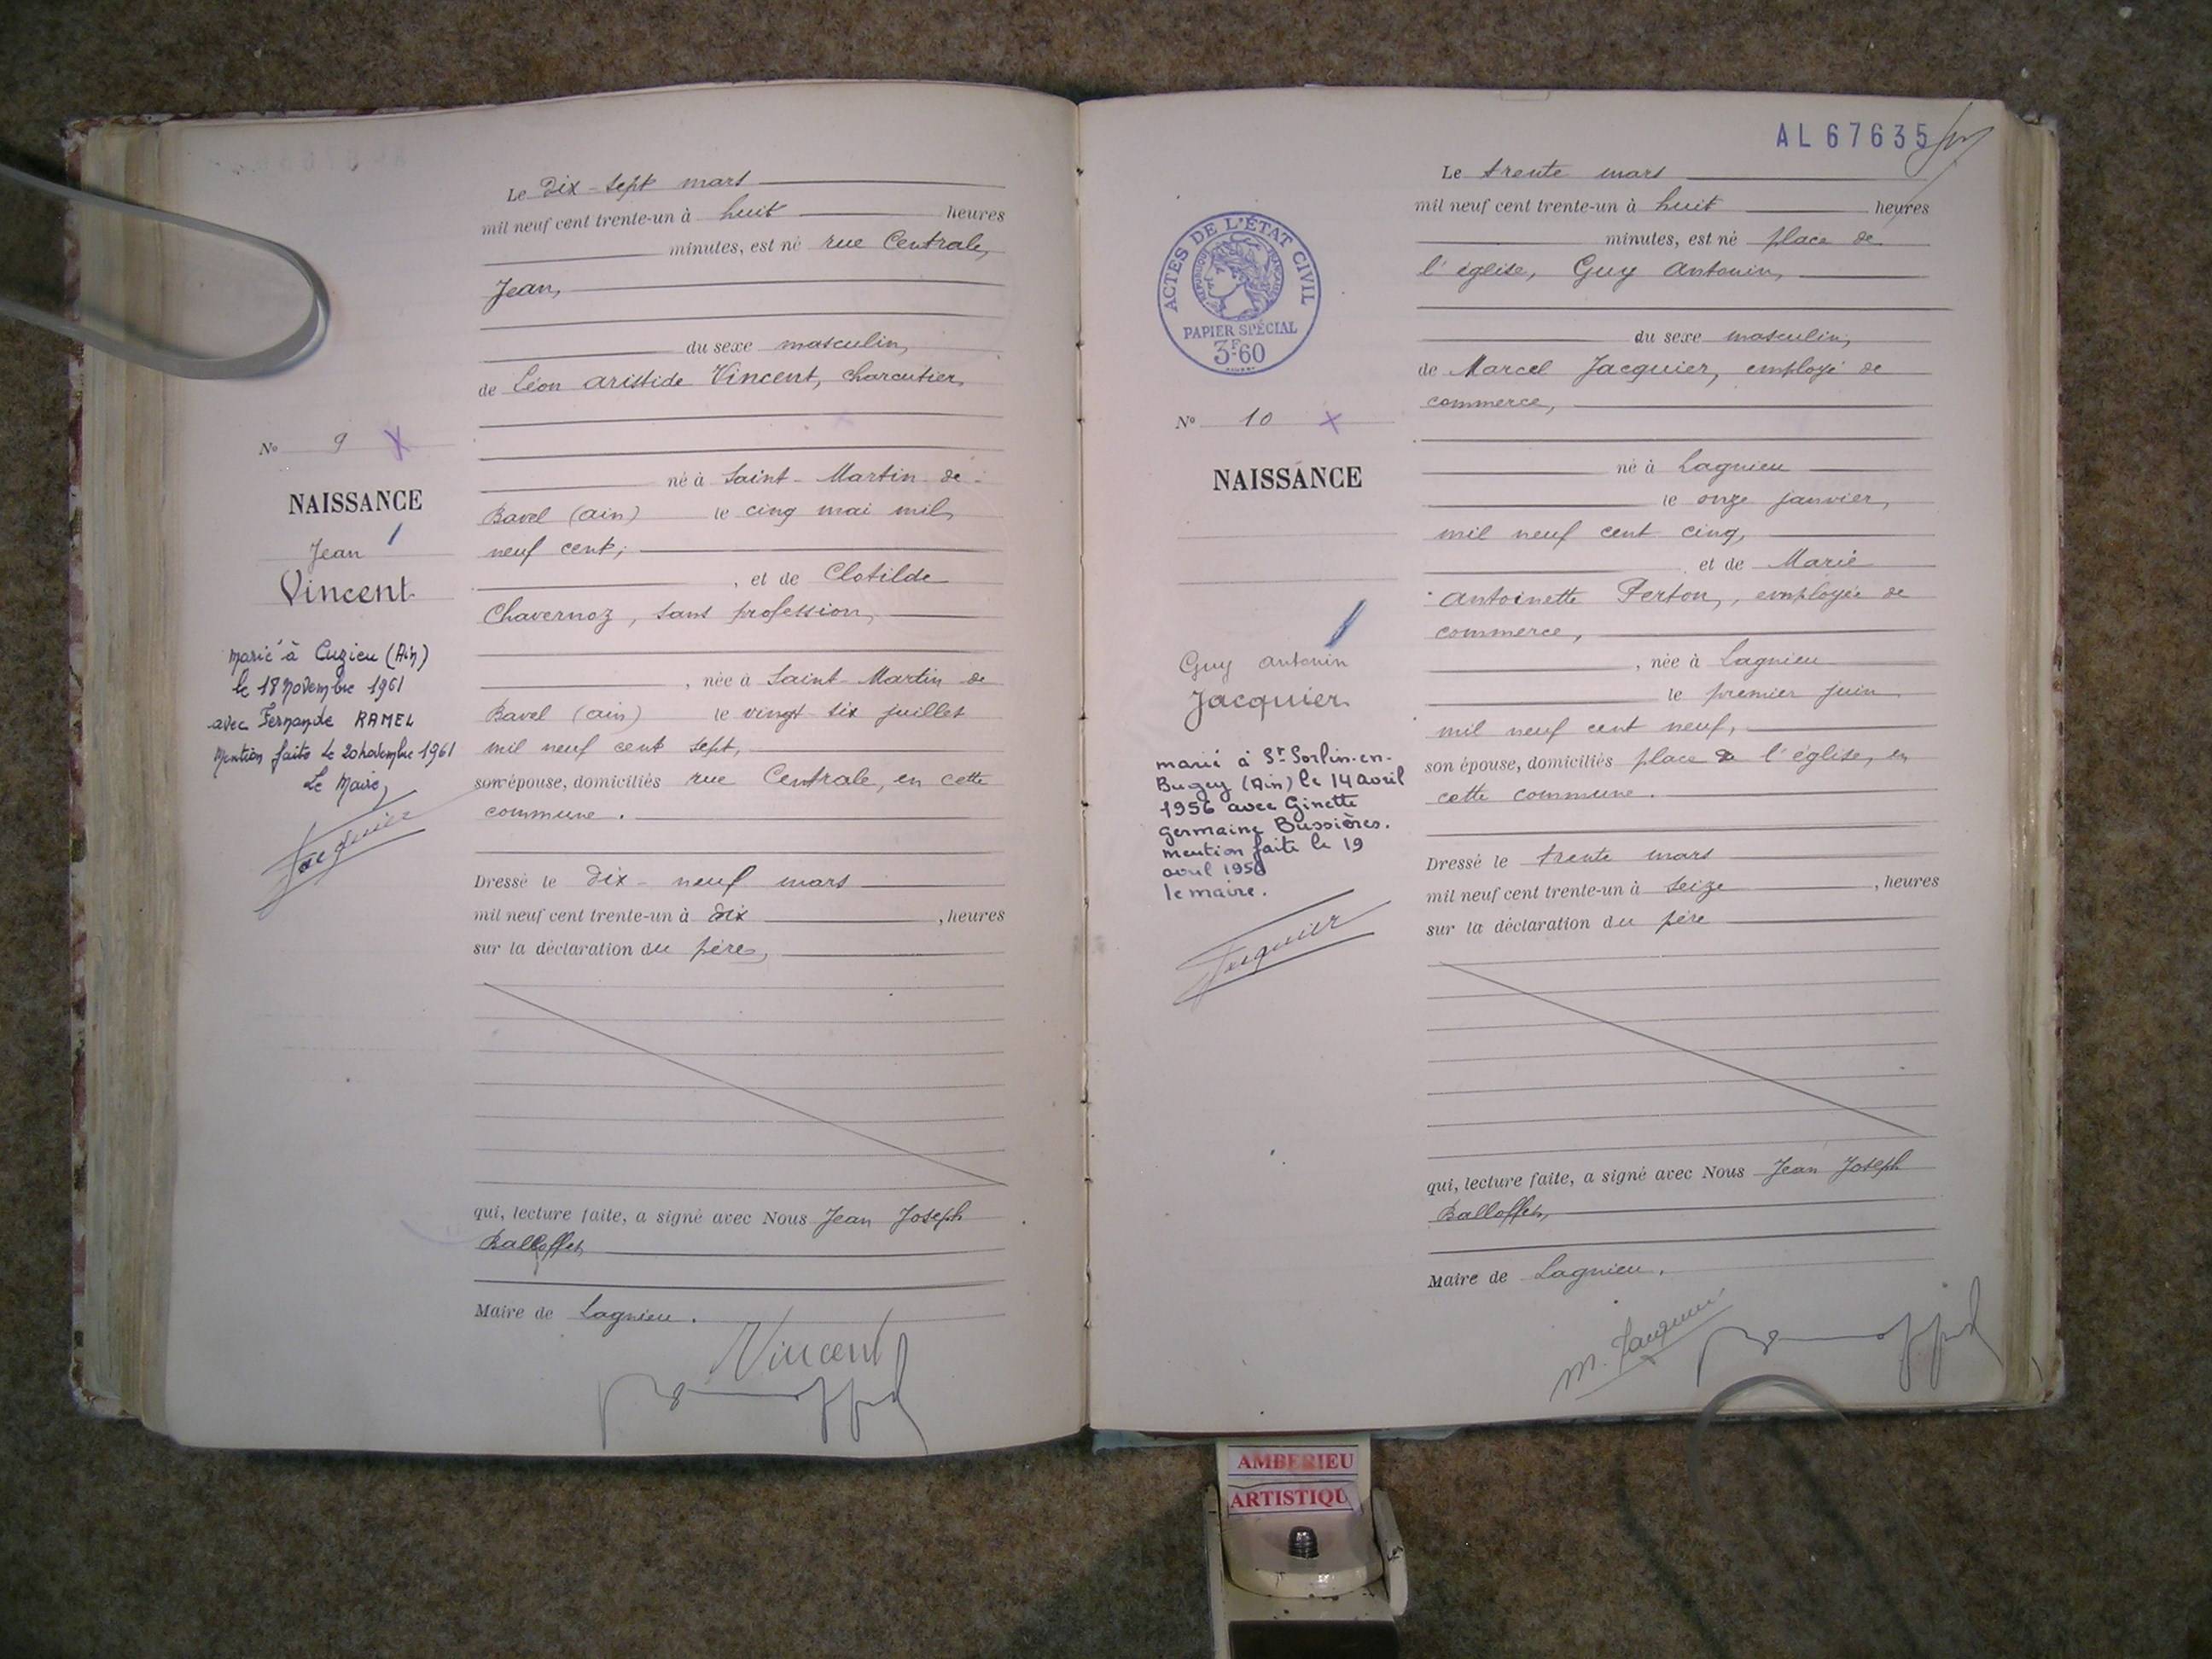 Le Dix-sept mars
mil neuf cent trente-un à huit heures
minutes, est né rue Centrale,
Jean,
du sexe masculin,
de Léon Aristide Vincent, charcutier,
né à Saint-Martin de
Bavel (Ain) le cinq mai mil
neuf cent;
, et de Clotilde
Chavernoz, sans profession,
, née à Saint-Martin de
Bavel (Ain) le vingt six juillet
mil neuf cent sept,
son épouse, domiciliés rue Centrale, en cette
commune.
Dressé le Dix-neuf mars
mil neuf cent trente-un à dix , heures
sur la déclaration du père,
qui, lecture faite, a signé avec Nous Jean Joseph
Balloffet,
Maire de Lagnieu.
Vincent
No 9 X
NAISSANCE
Jean
Vincent
marié à Cuzieu (Ain)
le 18 novembre 1961
avec Fernande RAMEL
Mention faite le 20 novembre 1961
Le Maire,
Jacquier
AL 67635
Le trente mars
mil neuf cent trente-un à huit heures
minutes, est né place de
l'église, Guy Antonin,
du sexe masculin,
de Marcel Jacquier, employé de
commerce,
né à Lagnieu
le onze janvier,
mil neuf cent cinq,
et de Marie
Antoinette Ferton, employée de
commerce,
, née à Lagnieu
le premier juin
mil neuf cent neuf,
son épouse, domiciliés place de l'église, en
cette commune.
Dressé le trente mars
mil neuf cent trente-un à seize , heures
sur la déclaration du père
qui, lecture faite, a signé avec Nous Jean Joseph
Balloffet,
Maire de Lagnieu.
M. Jacquier
ACTES DE L'ÉTAT CIVIL
RÉPUBLIQUE FRANÇAISE
PAPIER SPÉCIAL
3F60
No 10 X
NAISSANCE
Guy Antonin
Jacquier
marié à St Sorlin-en-
Bugey (Ain) le 14 avril
1956 avec Ginette
Germaine Bussières.
mention faite le 19
avril 1956
le maire.
Jacquier
AMBERIEU
ARTISTIQU